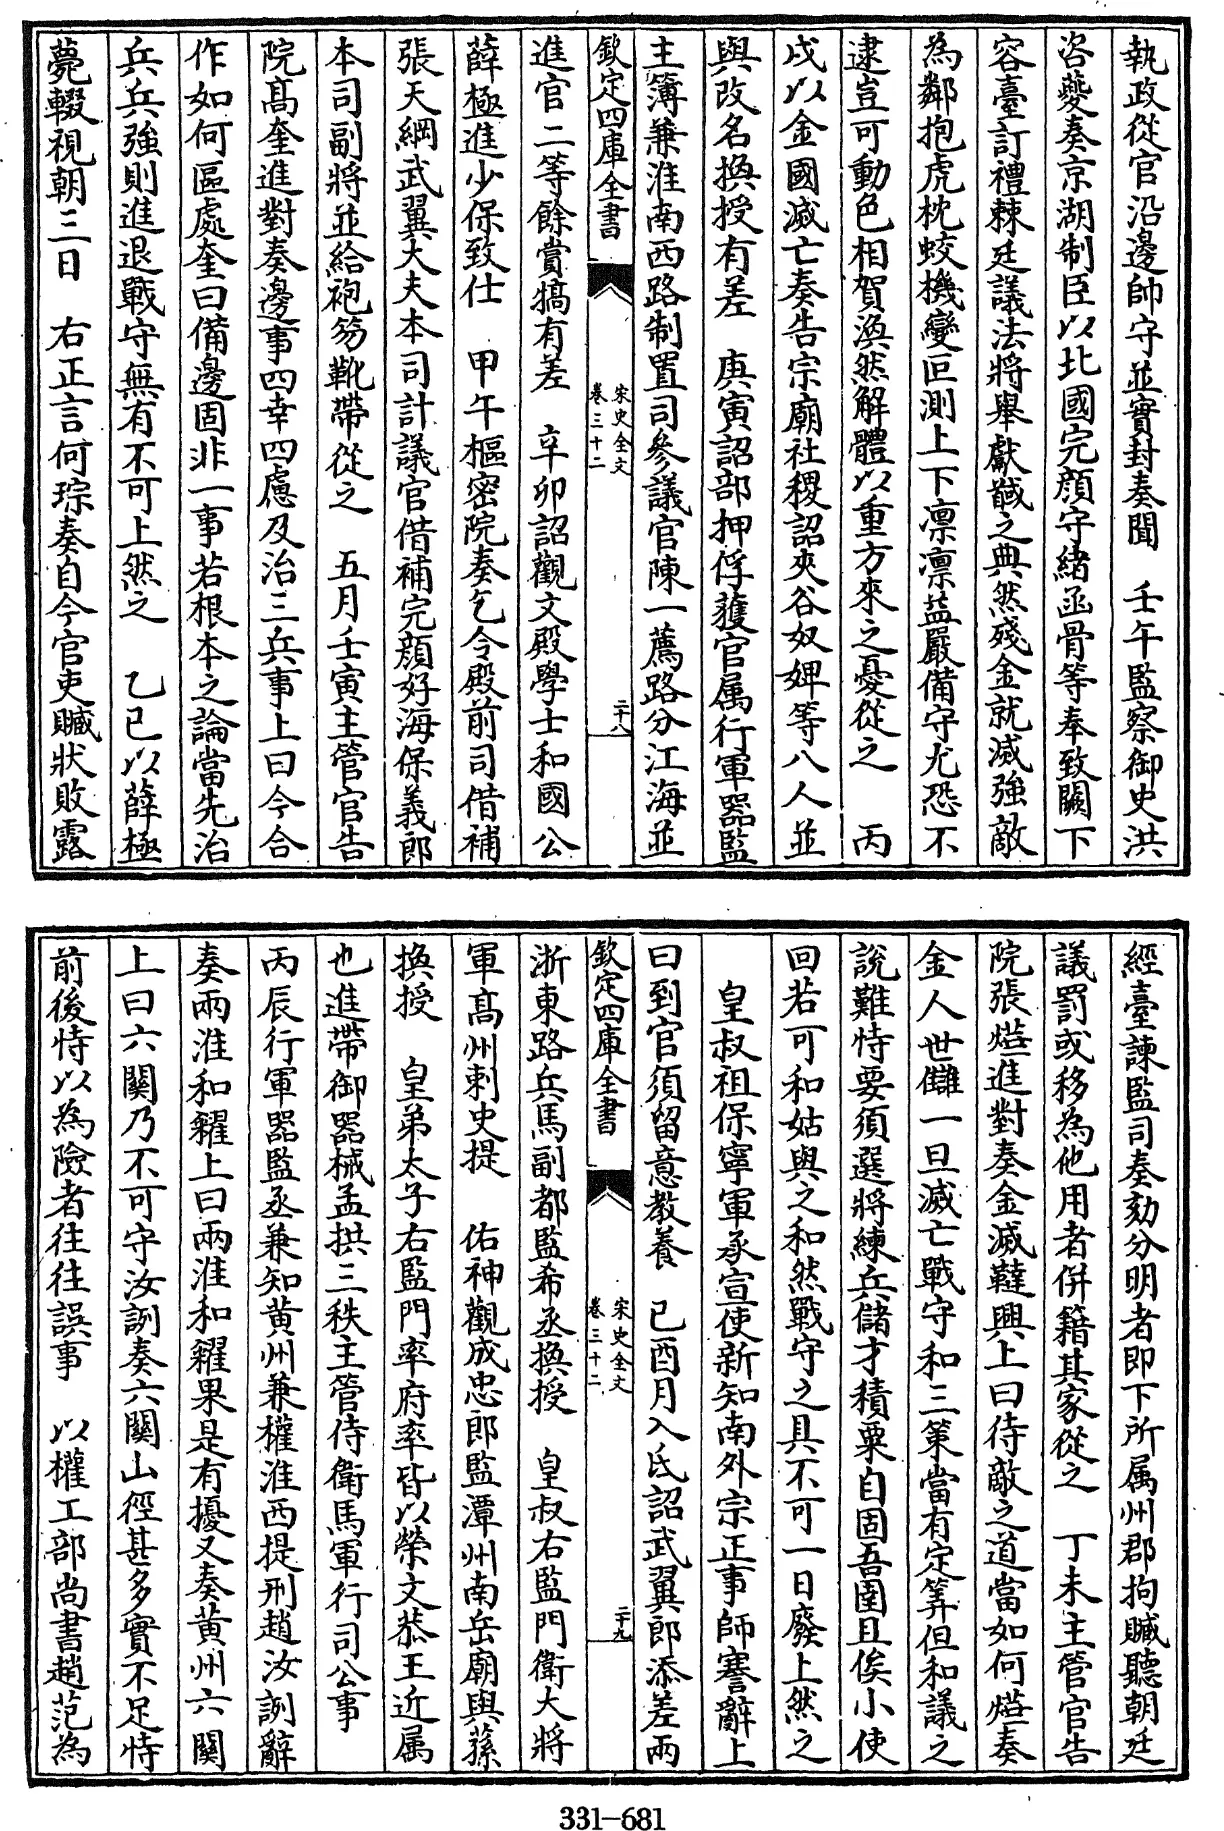 執政從官沿邊帥守並實封奏聞　壬午監察御史洪
咨夔奏京湖制臣以北國完顔守緒函骨等奉致闕下
容臺訂禮棘廷議法將舉獻馘之典然殘金就滅強敵
為鄰抱虎枕蛟機變叵測上下凛凛益嚴備守尤恐不
逮豈可動色相賀渙然解體以重方來之憂從之　丙
戌以金國滅亡奏告宗廟社稷詔夾谷奴婢等八人並
與改名換授有差　庚寅詔部押俘獲官屬行軍器監
主簿兼淮南西路制置司參議官陳一薦路分江海並
欽定四庫全書　宋史全文卷三十二　二十八
進官二等餘賞犒有差　辛卯詔觀文殿學士和國公
薛極進少保致仕　甲午樞密院奏乞令殿前司借補
張天綱武翼大夫本司計議官借補完顔好海保義郎
本司副將並給袍笏靴帶從之　五月壬寅主管官告
院髙奎進對奏邊事四幸四慮及治三兵事上曰今合
作如何區處奎曰備邊固非一事若根本之論當先治
兵兵強則進退戰守無有不可上然之　乙已以薛極
薨輟視朝三日　右正言何琮奏自今官吏贓狀敗露
經臺諫監司奏劾分明者即下所屬州郡拘贓聽朝廷
議罰或移為他用者併籍其家從之　丁未主管官告
院張煃進對奏金滅韃興上曰待敵之道當如何煃奏
金人世讎一旦滅亡戰守和三策當有定筭但和議之
說難恃要須選將練兵儲才積粟自固吾圉且俟小使
回若可和姑與之和然戰守之具不可一日廢上然之
皇叔祖保寧軍承宣使新知南外宗正事師𡩋辭上
曰到官須留意教養　己酉月入氐詔武翼郎添差兩
欽定四庫全書　宋史全文卷三十二　二十九
浙東路兵馬副都監希丞換授　皇叔右監門衛大將
軍髙州刺史提　佑神觀成忠郎監潭州南岳廟與蓀
換授　皇弟太子右監門率府率皆以榮文恭王近屬
也進帶御器械孟拱三秩主管侍衛馬軍行司公事
丙辰行軍器監丞兼知黃州兼權淮西提刑趙汝訓辭
奏兩淮和糴上曰兩淮和糴果是有擾又奏黃州六關
上曰六關乃不可守汝訓奏六關山徑甚多實不足恃
前後恃以為險者往往誤事　以權工部尚書趙范為
331-681